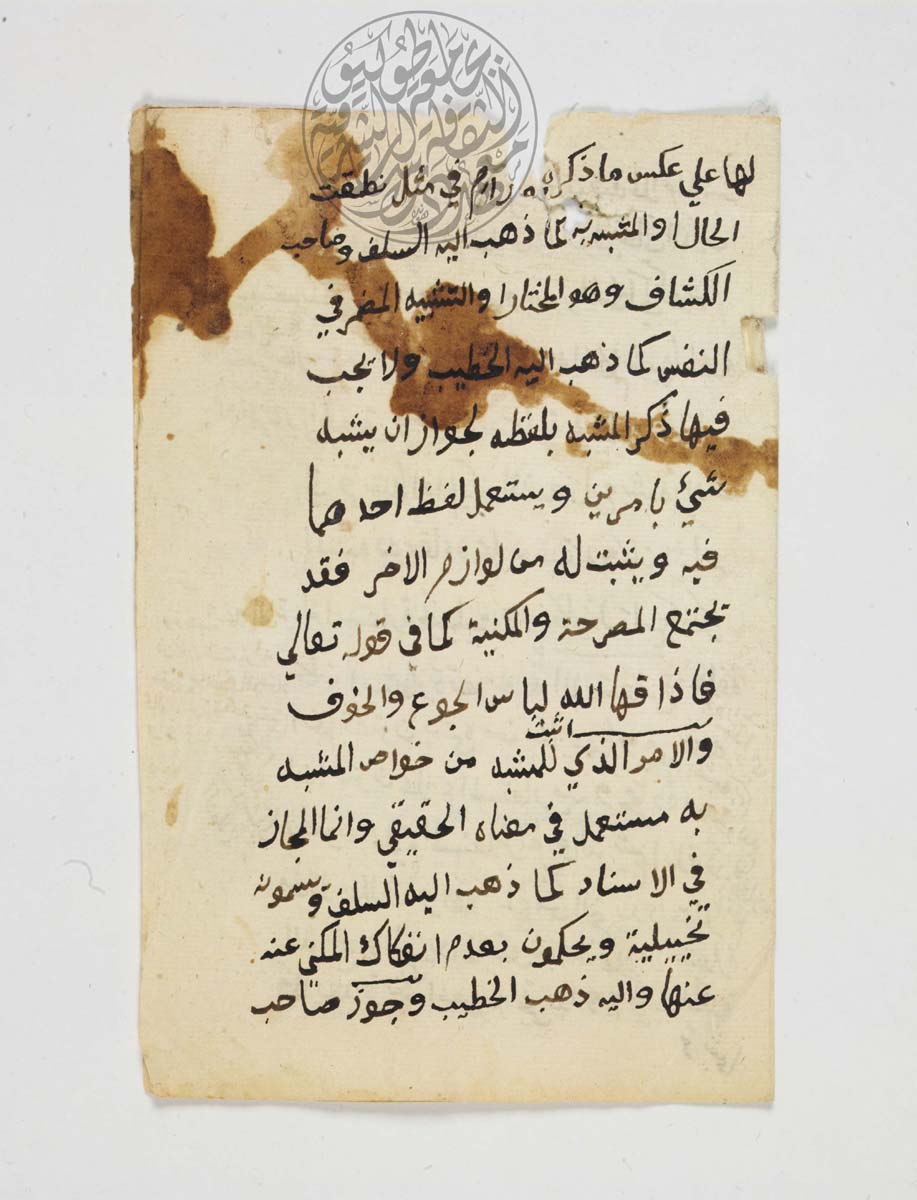 لها علي عكس ما ذكره في مثل نطقت
الحال او المشبه به كما ذهب اليه السلف وصاحب
الكشاف وهو المختار او التشبيه المضمر في
النفس كما ذهب اليه الخطيب ولا يجب
فيها ذكر المشبه بلفظه لجواز ان يشبه
شيئ بامرين ويستعمل لفظ احدهما
فيه ويثبت له من لوازم الاخر فقد
تجتمع المصرحة والمكنية كما في قوله تعالي
فاذاقها الله لباس الجوع والخوف
والامر الذي اثبت للمشبه من خواص المشبه
به مستعمل في معناه الحقيقي وانما المجاز
في الاسناد كما ذهب اليه السلف ويسمونه
تخييلية ويحكمون بعدم انفكاك المكني عنه
عنها واليه ذهب الخطيب وجوز صاحب